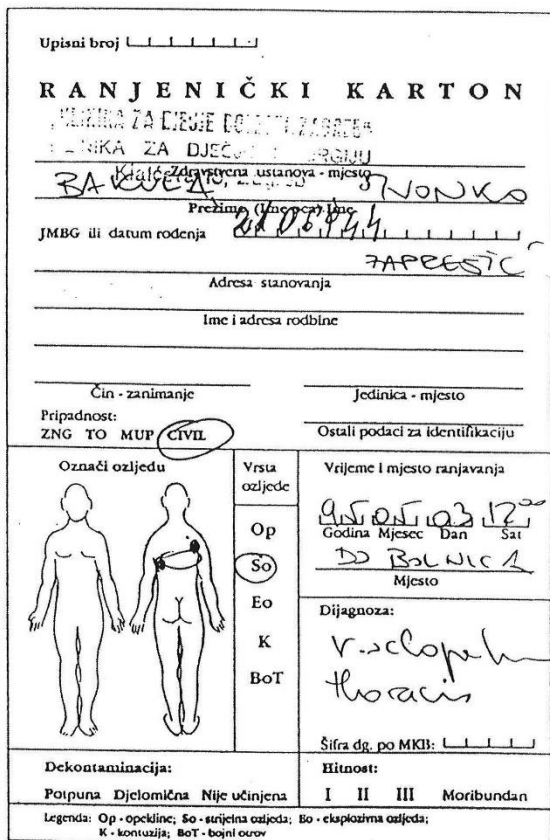 Upisni broj
RANJENIČKI KARTON
KLINIKA ZA DJEČJE BOLESTI ZAGREB
KLINIKA ZA DJEČJU KIRURGIJU
Zdravstvena ustanova - mjesto
BAKULA IVONKO
Prezime (Ime oca) Ime
JMBG ili datum rođenja
ZAPREŠIĆ
Adresa stanovanja
Ime i adresa rodbine
Čin - zanimanje
Jedinica - mjesto
Pripadnost:
ZNG TO MUP CIVIL
Ostali podaci za identifikaciju
Označi ozljedu
Vrsta ozljede
Op
So
Eo
K
BoT
Vrijeme i mjesto ranjavanja
95 05 03 12⁰⁰
Godina Mjesec Dan Sat
DO BOLNICA
Mjesto
Dijagnoza:
thoracis
Šifra dg. po MKB:
Dekontaminacija:
Potpuna Djelomična Nije učinjena
Hitnost:
I II III Moribundan
Legenda: Op - opekline; So - strijelna ozljeda; Eo - eksplozivna ozljeda;
K - kontuzija; BoT - bojni otrov